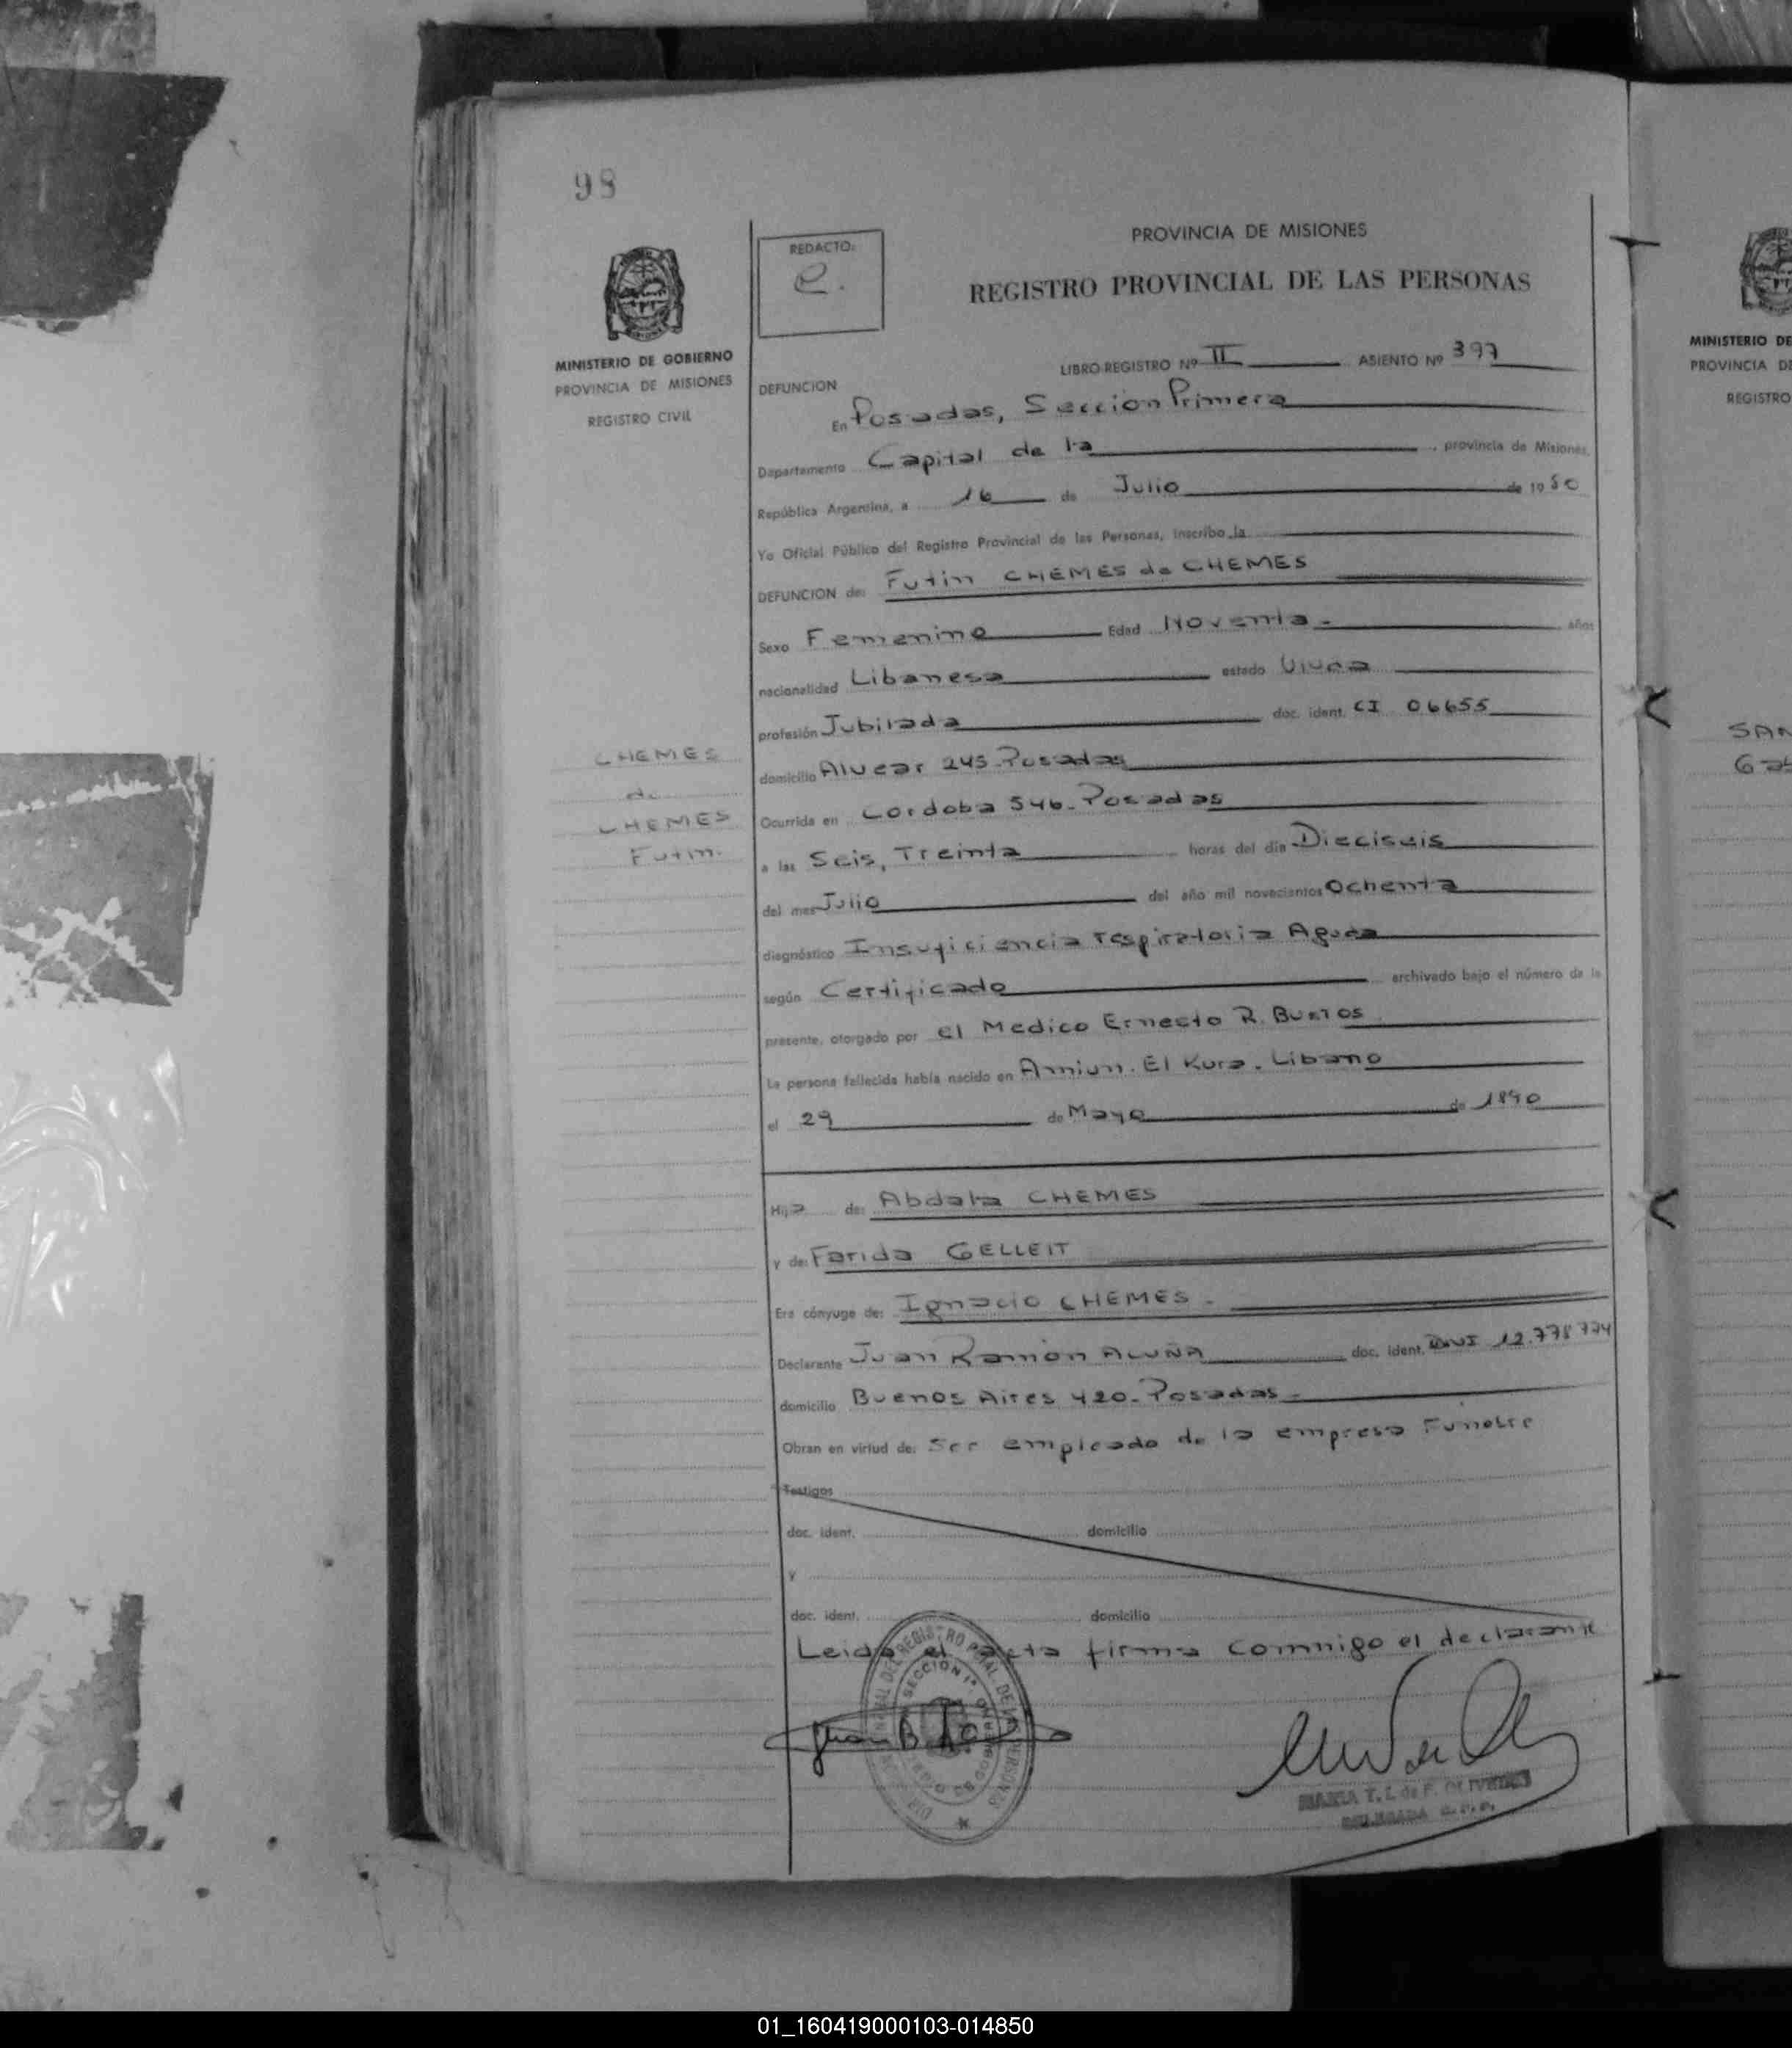 98
PROVINCIA DE MISIONES
REGISTRO PROVINCIAL DE LAS PERSONAS
REDACTO:
e.
MINISTERIO DE GOBIERNO
PROVINCIA DE MISIONES
REGISTRO CIVIL
LIBRO-REGISTRO Nº II ASIENTO Nº 397
DEFUNCION
En Posadas, Seccion Primera
Departamento Capital de la , provincia de Misiones,
República Argentina, a 16 de Julio de 1980
Yo Oficial Público del Registro Provincial de las Personas, inscribo la
DEFUNCION de: Futin CHEMES de CHEMES
Sexo Femenino Edad Noventa - años
nacionalidad Libanesa estado Viuda
profesión Jubilada doc. ident. CI 06655
domicilio Alvear 245-Posadas
Ocurrida en Cordoba 546-Posadas
a las Seis, Treinta horas del día Dieciseis
del mes Julio del año mil novecientos Ochenta
diagnóstico Insuficiencia respiratoria Aguda
según Certificado archivado bajo el número de la
presente, otorgado por el Medico Ernesto R. Bustos
La persona fallecida había nacido en Amiun. El Kura. Libano
el 29 de Mayo de 1890
CHEMES
de
CHEMES
Futin.
Hija de: Abdala CHEMES
y de: Farida GELLEIT
Era cónyuge de: Ignacio CHEMES -
Declarante Juan Ramón ACUÑA doc. ident. DNI 12.778774
domicilio Buenos Aires 420-Posadas-
Obran en virtud de: Ser empleado de la empresa Funebre
Testigos
doc. ident. domicilio
y
doc. ident. domicilio
Leida el acta firma conmigo el declarante
SECCION 1ª
MARIA T. L. de F. OLIVEIRA
DELEGADA
MINISTERIO DE
PROVINCIA DE
REGISTRO
SAN
01_160419000103-014850